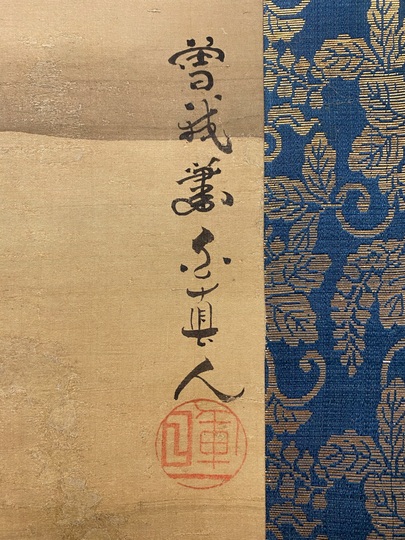 曾我蕭白真人
暉